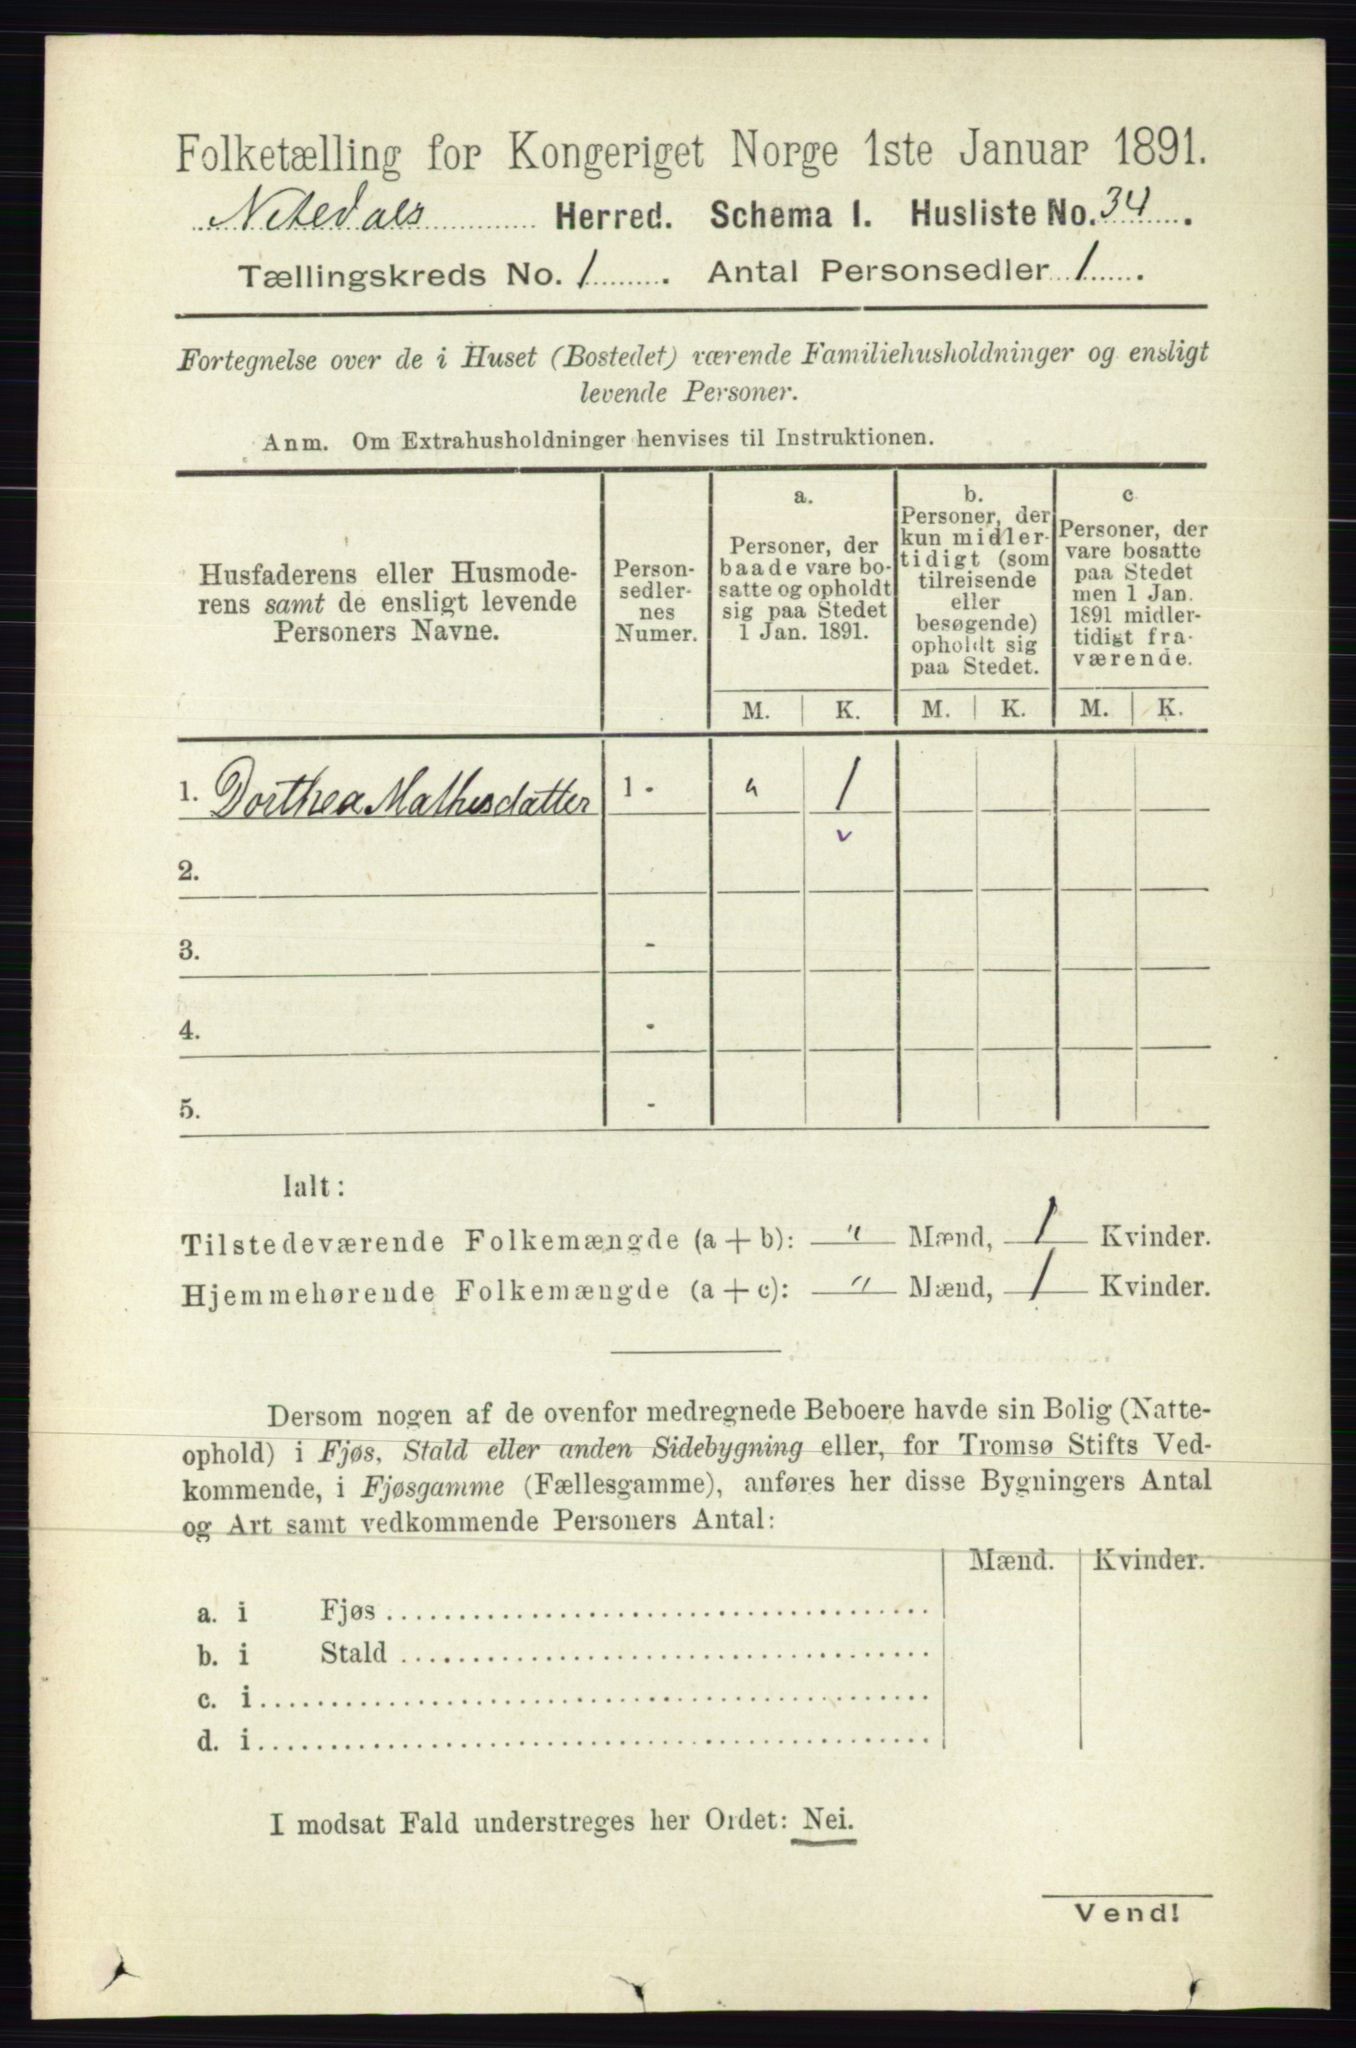 Folketælling for Kongeriget Norge 1ste Januar 1891.
Nitedals Herred. Schema I. Husliste No. 34.
Tællingskreds No. 1. Antal Personsedler 1.
Fortegnelse over de i Huset (Bostedet) værende Familiehusholdninger og ensligt
levende Personer.
Anm. Om Extrahusholdninger henvises til Instruktionen.
Husfaderens eller Husmode-
rens samt de ensligt levende
Personers Navne.
Person-
sedler-
nes
Numer.
a.
Personer, der
baade vare bo-
satte og opholdt
sig paa Stedet
1 Jan. 1891.
b.
Personer, der
kun midler-
tidigt (som
tilreisende
eller
besøgende)
opholdt sig
paa Stedet.
c
Personer, der
vare bosatte
paa Stedet
men 1 Jan.
1891 midler-
tidigt fra-
værende.
M. K. M. K. M. K.
1. Dorthea Mathisdatter 1 - " 1
v
2.
3. -
4. -
5. -
Ialt:
Tilstedeværende Folkemængde (a + b): " Mænd, 1 Kvinder.
Hjemmehørende Folkemængde (a + c): " Mænd, 1 Kvinder.
Dersom nogen af de ovenfor medregnede Beboere havde sin Bolig (Natte-
ophold) i Fjøs, Stald eller anden Sidebygning eller, for Tromsø Stifts Ved-
kommende, i Fjøsgamme (Fællesgamme), anføres her disse Bygningers Antal
og Art samt vedkommende Personers Antal:
Mænd. Kvinder.
a. i Fjøs
b. i Stald
c. i
d. i
I modsat Fald understreges her Ordet: Nei.
Vend!